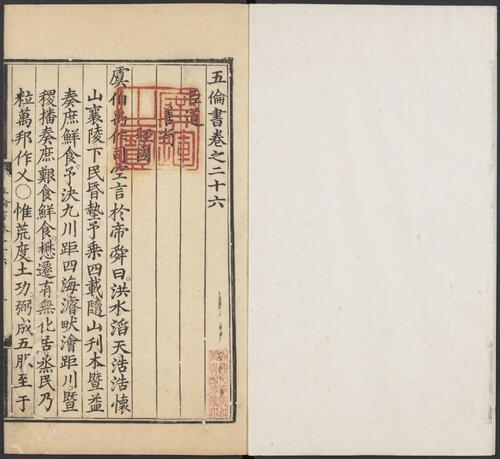 五倫書卷之二十六
臣道
善行
經國
虞伯禹作司空言於帝舜曰洪水滔天浩浩懷
山襄陵下民昏墊予乘四載隨山刊木暨益
奏庶鮮食予決九川距四海濬畎澮距川暨
稷播奏庶艱食鮮食懋遷有無化居烝民乃
粒萬邦作乂〇惟荒度土功弼成五服至于